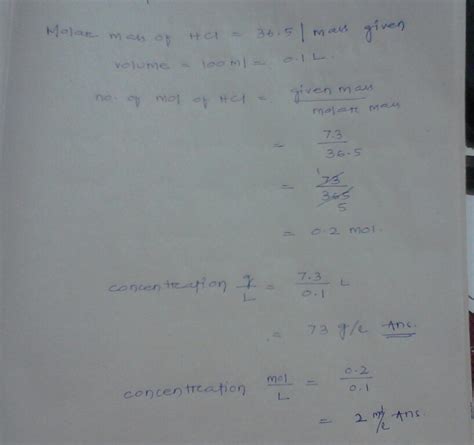 Molar mass of HCl = 36.5 | mass given
volume = 100 ml = 0.1 L.
no. of mol of HCl = given mass / molar mass
= 7.3 / 36.5
= 1 73 / 365 5
= 0.2 mol.
concentration g/L = 7.3 / 0.1 L
= 73 g/L Ans.
concentration mol/L = 0.2 / 0.1
= 2 m/L Ans.